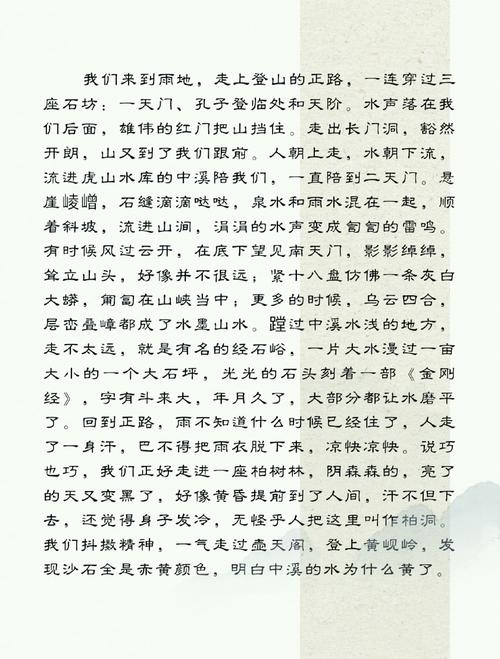 我们来到雨地，走上登山的正路，一连穿过三
座石坊：一天门、孔子登临处和天阶。水声落在我
们后面，雄伟的红门把山挡住。走出长门洞，豁然
开朗，山又到了我们跟前。人朝上走，水朝下流，
流进虎山水库的中溪陪我们，一直陪到二天门。悬
崖崚嶒，石缝滴滴哒哒，泉水和雨水混在一起，顺
着斜坡，流进山涧，涓涓的水声变成訇訇的雷鸣。
有时候风过云开，在底下望见南天门，影影绰绰，
耸立山头，好像并不很远；紧十八盘仿佛一条灰白
大蟒，匍匐在山峡当中；更多的时候，乌云四合，
层峦叠嶂都成了水墨山水。蹚过中溪水浅的地方，
走不太远，就是有名的经石峪，一片大水漫过一亩
大小的一个大石坪，光光的石头刻着一部《金刚
经》，字有斗来大，年月久了，大部分都让水磨平
了。回到正路，雨不知道什么时候已经住了，人走
了一身汗，巴不得把雨衣脱下来，凉快凉快。说巧
也巧，我们正好走进一座柏树林，阴森森的，亮了
的天又变黑了，好像黄昏提前到了人间，汗不但下
去，还觉得身子发冷，无怪乎人把这里叫作柏洞。
我们抖擞精神，一气走过壶天阁，登上黄岘岭，发
现沙石全是赤黄颜色，明白中溪的水为什么黄了。